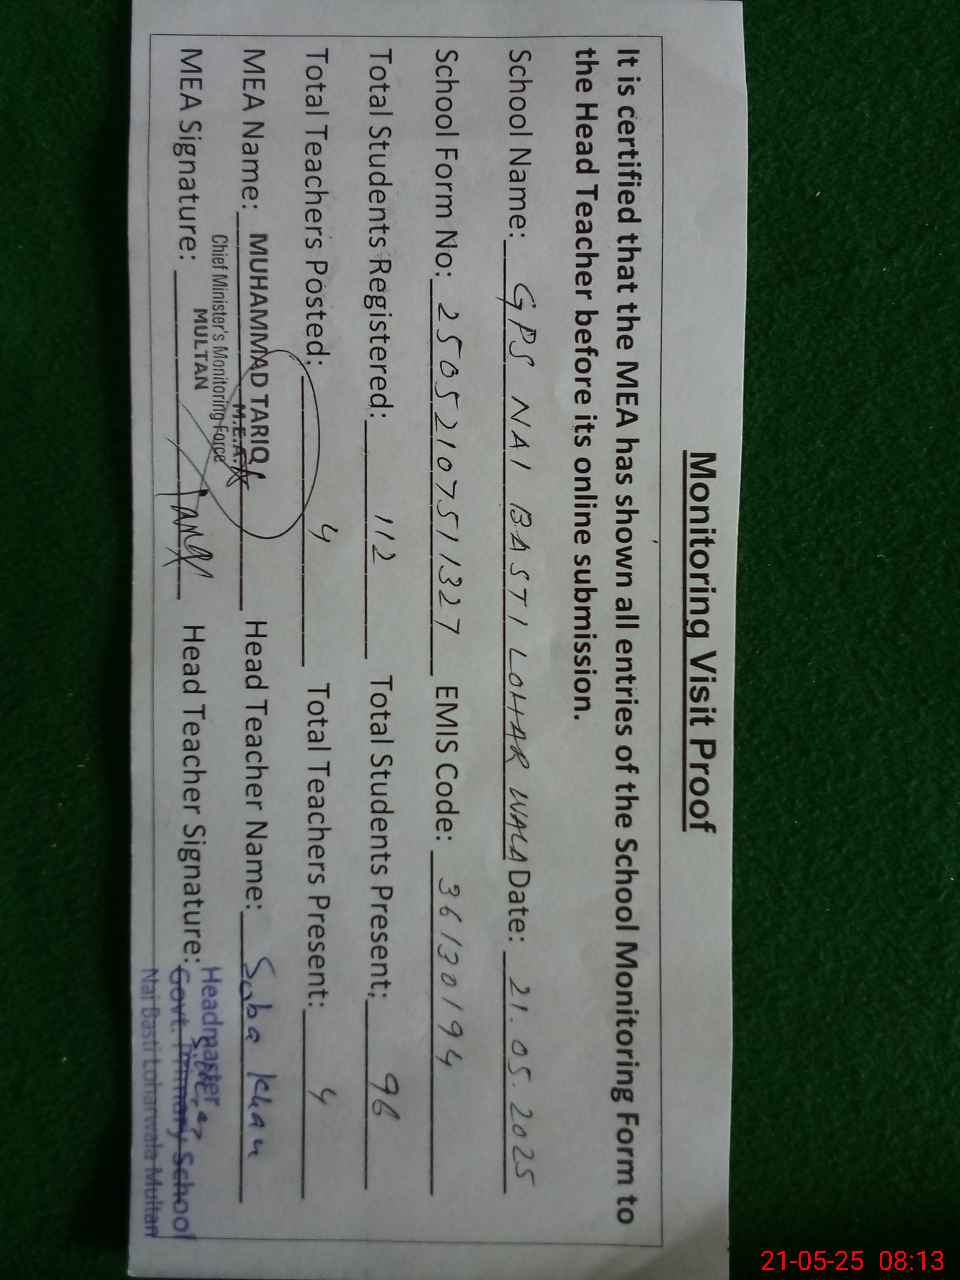 Monitoring Visit Proof
It is certified that the MEA has shown all entries of the School Monitoring Form to
the Head Teacher before its online submission.
School Name: GPS NAI BASTI LOHAR WALA Date: 21.05.2025
School Form No: 2505210751327 EMIS Code: 36130194
Total Students Registered: 112 Total Students Present: 96
Total Teachers Posted: 4 Total Teachers Present: 4
MEA Name: MUHAMMAD TARIQ Head Teacher Name: Saba Khan
M.E.A.
Chief Minister's Monitoring Force
MULTAN
MEA Signature: Tariq Head Teacher Signature:
Headmaster
Govt. Primary School
Nai Basti Loharwala Multan
21-05-25 08:13